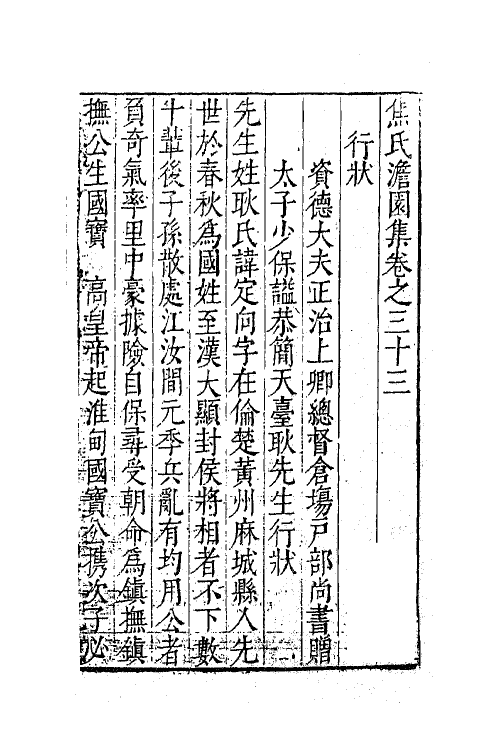 焦氏澹園集卷之三十三
行狀
資德大夫正治上卿總督倉塲戸部尚書贈
太子少保謚恭簡天臺耿先生行狀
先生姓耿氏諱定向字在倫楚黃州麻城縣人先
世於春秋爲國姓至漢大顯封侯將相者不下數
十輩後子孫散處江汝間元季兵亂有均用公者
負奇氣率里中豪據險自保尋受朝命爲鎮撫鎮
撫公生國寶　高皇帝起淮甸國寶公携次子必